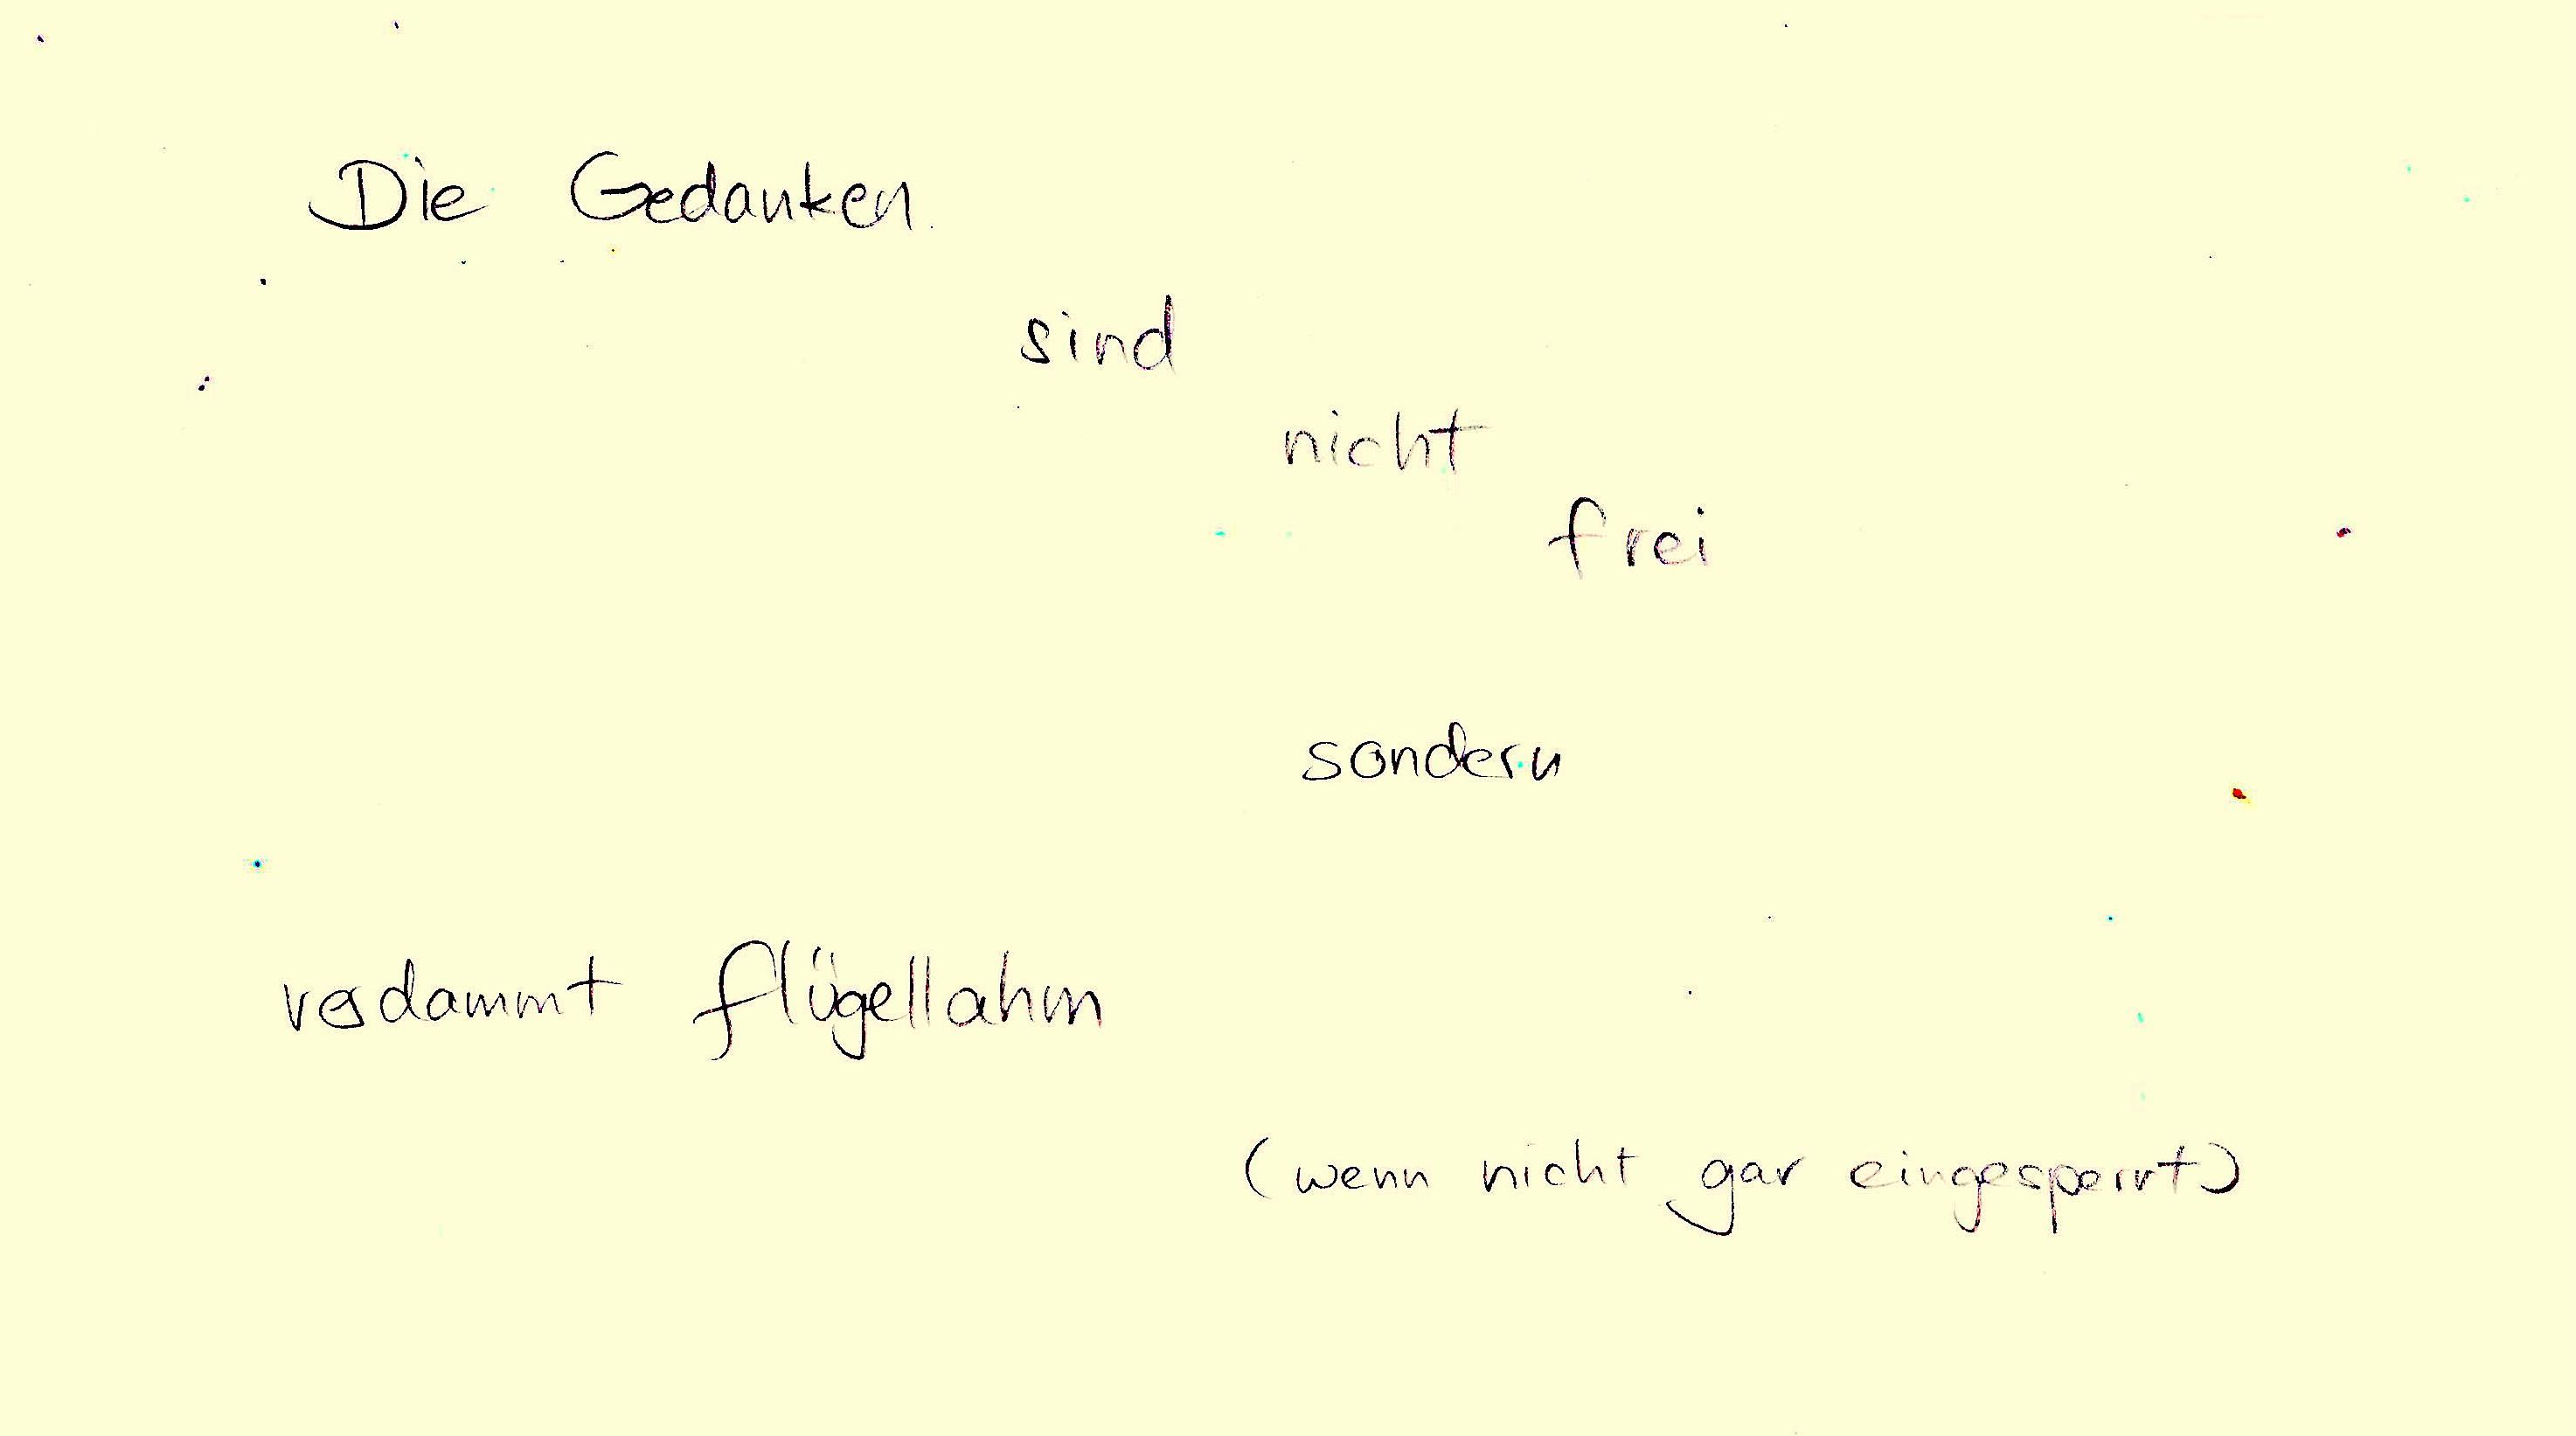 Die Gedanken
sind
nicht
frei
sondern
verdammt flügellahm
(wenn nicht gar eingesperrt)